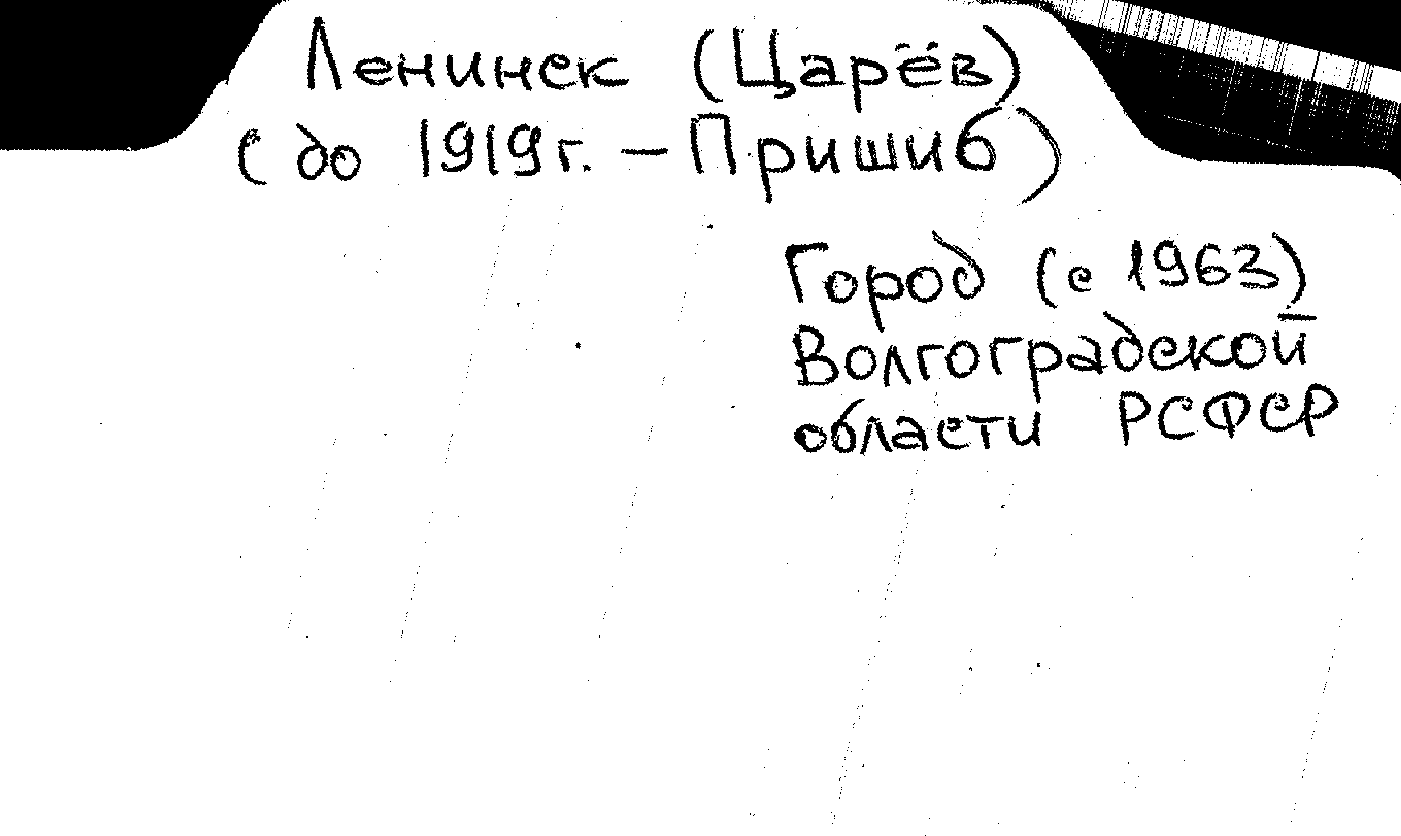 Ленинск (Царёв)
(до 1919г. – Пришиб)
Город (с 1963)
Волгоградской
области РСФСР